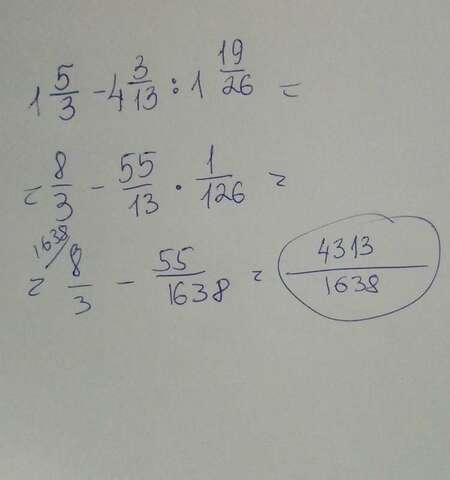 1 5/3 - 4 3/13 : 1 19/26 =
= 8/3 - 55/13 · 1/126 =
= 1638/ 8/3 - 55/1638 = 4313/1638